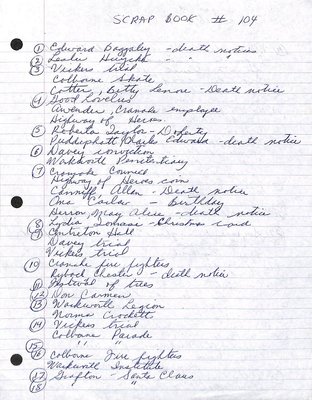 SCRAP BOOK # 104
① Edward Bazgaley - death notice
② Leader " "
③ Vickers trial
Colborne Skate
Cotter, Betty Lenore - Death notice
④ Good Lovelies
Cramahe employee
Highway of Heroes
⑤ Roberta Taylor - Doherty
Charles Edward - death notice
⑥ Davey conviction
Warkworth Penitentiary
⑦ Cramahe Council
Highway of Heroes coin
Canniff Allan - Death notice
Ona Carlaw - Birthday
Herron May Alice - death notice
⑧ Lydia - Christmas card
⑨ Hall
Davey trial
Vickers trial
⑩ Cramahe fire fighters
Chester - death notice
⑪ Festival of trees
⑫ Don Carmen
⑬ Warkworth Legion
Norma Crockett
⑭ Vickers trial
Colborne Parade
⑮ " "
⑯ Colborne Fire fighters
Warkworth Institute
⑰ Grafton - Santa Claus
⑱ "